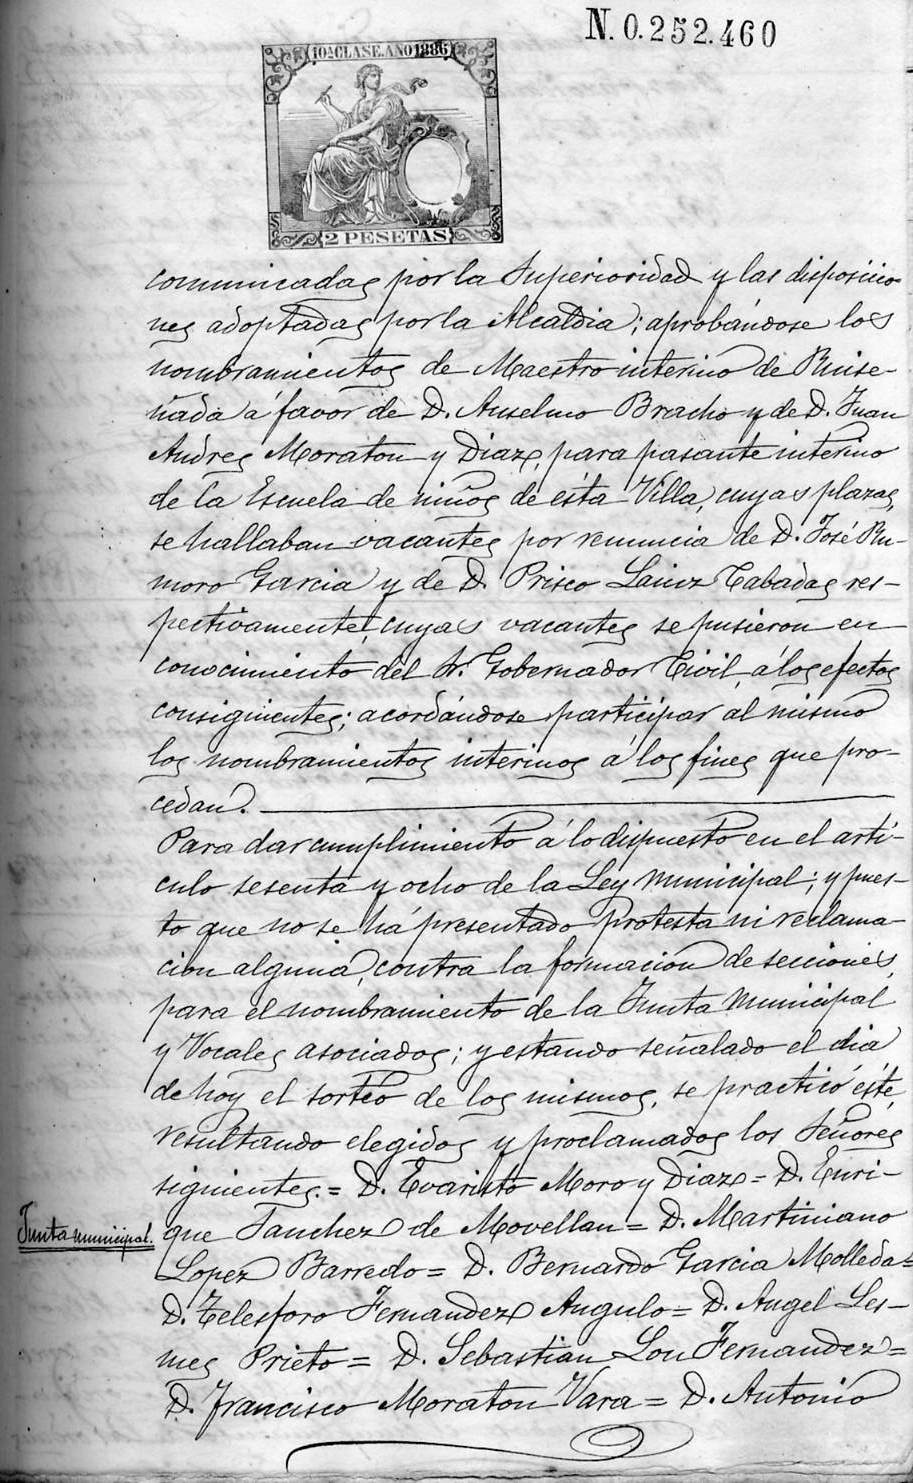 N. 0.252.460
10ª CLASE. AÑO 1886
2 PESETAS
comunicadas por la Superioridad y las disposicio-
nes adoptadas por la Alcaldia; aprobándose los
nombramientos de Maestro interino de Ruise-
ñada á favor de D. Anselmo Bracho y de D. Juan
Andres Moraton y Diaz, para pasante interino
de la Escuela de niños de ésta Villa, cuyas plazas,
se hallaban vacantes por renuncia de D. José Ru-
moro Garcia y de D. Prisco Lainz Cabadas res-
pectivamente, cuyas vacantes se pusieron en
conocimiento del Sr. Gobernador Civil, á los efectos
consiguientes; acordándose participar al mismo
los nombramientos interinos á los fines que pro-
cedan.
Para dar cumplimiento á lo dispuesto en el artí-
culo sesenta y ocho de la Ley Municipal; y pues-
to que no se há presentado protesta ni reclama-
cion alguna, contra la formacion de secciones,
para el nombramiento de la Junta Municipal
y Vocales asociados; y estando señalado el dia
de hoy el sorteo de los mismos, se practicó éste,
resultando elegidos y proclamados los Señores
siguientes. = D. Evaristo Moro y Diaz = D. Enri-
Junta municipal.
que Sanchez de Movellan = D. Martiniano
Lopez Barredo = D. Bernardo Garcia Molleda =
D. Telesforo Fernandez Angulo = D. Angel Les-
mes Prieto = D. Sebastian Lou Fernandez =
D. Francisco Moraton Vara = D. Antonio